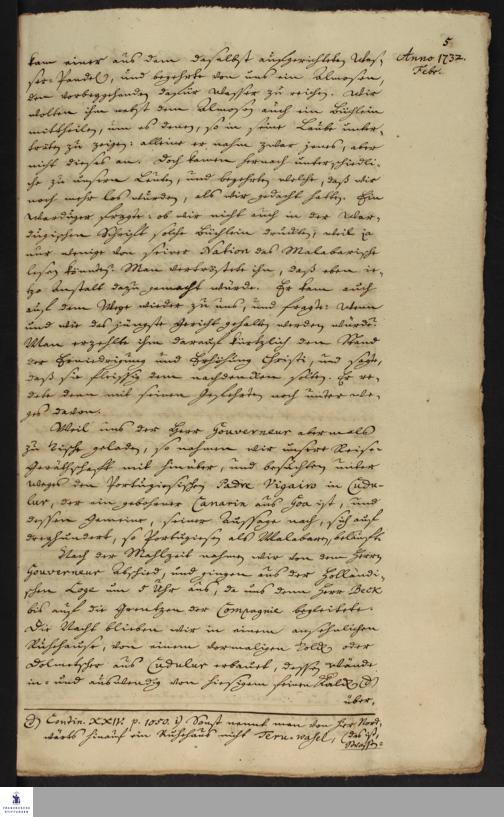 5
Anno 1732.
Febr.
kam einer aus dem daselbst aufgerichteten Was-
ser-Pandel, und begehrte von uns ein Almosen,
den vorbeygehenden dafür Wasser zu reichen. Wir
wolten ihm nebst dem Almosen auch ein Büchlein
mittheilen, um es denen, so in seine Laube unter-
träten zu zeigen: alleine er nahm zwar jenes, aber
nicht dieses an. Doch kamen hernach unterschiedli-
che zu unsern Leuten, und begehrten welche, daß wir
noch mehr los wurden, als wir gedacht hatten. Ein
Warduger fragte: ob wir nicht auch in der War-
dugischen Schrift solche Büchlein druckten, weil ja
nur wenige von seiner Nation das Malabarische
lesen könten? Man vertröstete ihn, daß eben je-
tzo Anstalt dazu gemacht würde. Er kam auch
auf dem Wege wieder zu uns, und fragte: wenn
und wie das jüngste Gericht gehalten werden würde?
Man erzehlte ihm darauf kürtzlich den Stand
der Erniedrigung und Erhöhung Christi, und sagte,
daß sie fleissig dem nachdencken solten. Er re-
dete denn mit seinen Gefehrten noch unter we-
ges davon.
Weil uns der Herr Gouverneur abermals
zu Tische geladen, so nahmen wir unsere Reise-
Geräthschaft mit hinüber, und besuchten unter
weges den Portugiesischen Padre Vigairo in Cudu-
lur, der ein gebohrner Canarin aus Goa ist, und
dessen Gemeine, seiner Aussage nach, sich auf
dreyhundert, so Portugiesen als Malabaren, beläuft.
Nach der Mahlzeit nahmen wir von dem Herrn
Gouverneur Abschied, und gingen aus der Holländi-
schen Loge um 5 Uhr aus, da uns denn Herr Beck
bis auf die Grentzen der Compagnie begleitete.
Die Nacht blieben wir in einem ansehnlichen
Ruhehause, von einem vormaligen
Dolmetscher aus Cudulur erbauet, dessen Wände
in- und auswendig von hiesigem feinen Kalck
über,
Contin. XXIV. p. 1050. Sonst nennt man von hier Nord-
wärts hinauf ein Ruhehaus nicht (das ist,